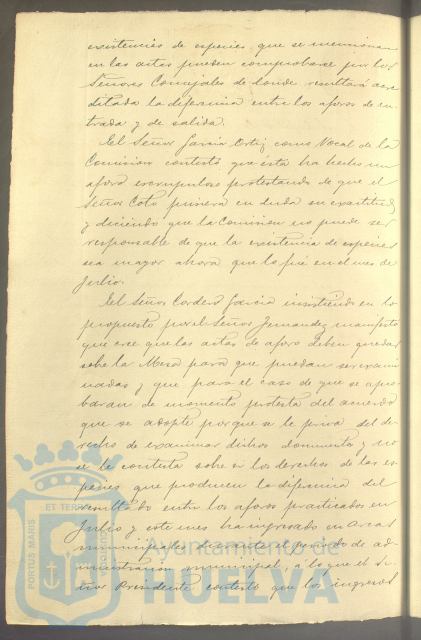 existencias de especies que se mencionan
en las actas pueden comprobarse por los
Señores Concejales de donde resultará acre
ditada la diferencia entre los aforos de en
trada y de salida.
El Señor García Ortiz como Vocal de la
Comisión contestó que ésta ha hecho un
aforo escrupuloso protestando de que el
Señor Coto pusiera en duda su exactitud
y diciendo que la Comisión no puede ser
responsable de que la existencia de especies
sea mayor ahora que lo fué en el mes de
Julio.
El Señor Cordero García insistiendo en lo
propuesto por el Señor Fernandez manifestó
que cree que las actas de aforo deben quedar
sobre la Mesa para que puedan ser exami
nadas y que para el caso de que se apro
baran de momento protesta del acuerdo
que se adopte porque se le priva del de
recho de examinar dichos documentos y no
se le contesta sobre si los derechos de las es
pecies que producen la diferencia del
resultado entre los aforos practicados en
Julio y este mes han ingresado en arcas
municipales durante el periodo de ad
ministración municipal, a lo que el Se
ñor Presidente contestó que los ingresos
PORTUS MARIS
ET TERRAE
Ayuntamiento de
HUELVA